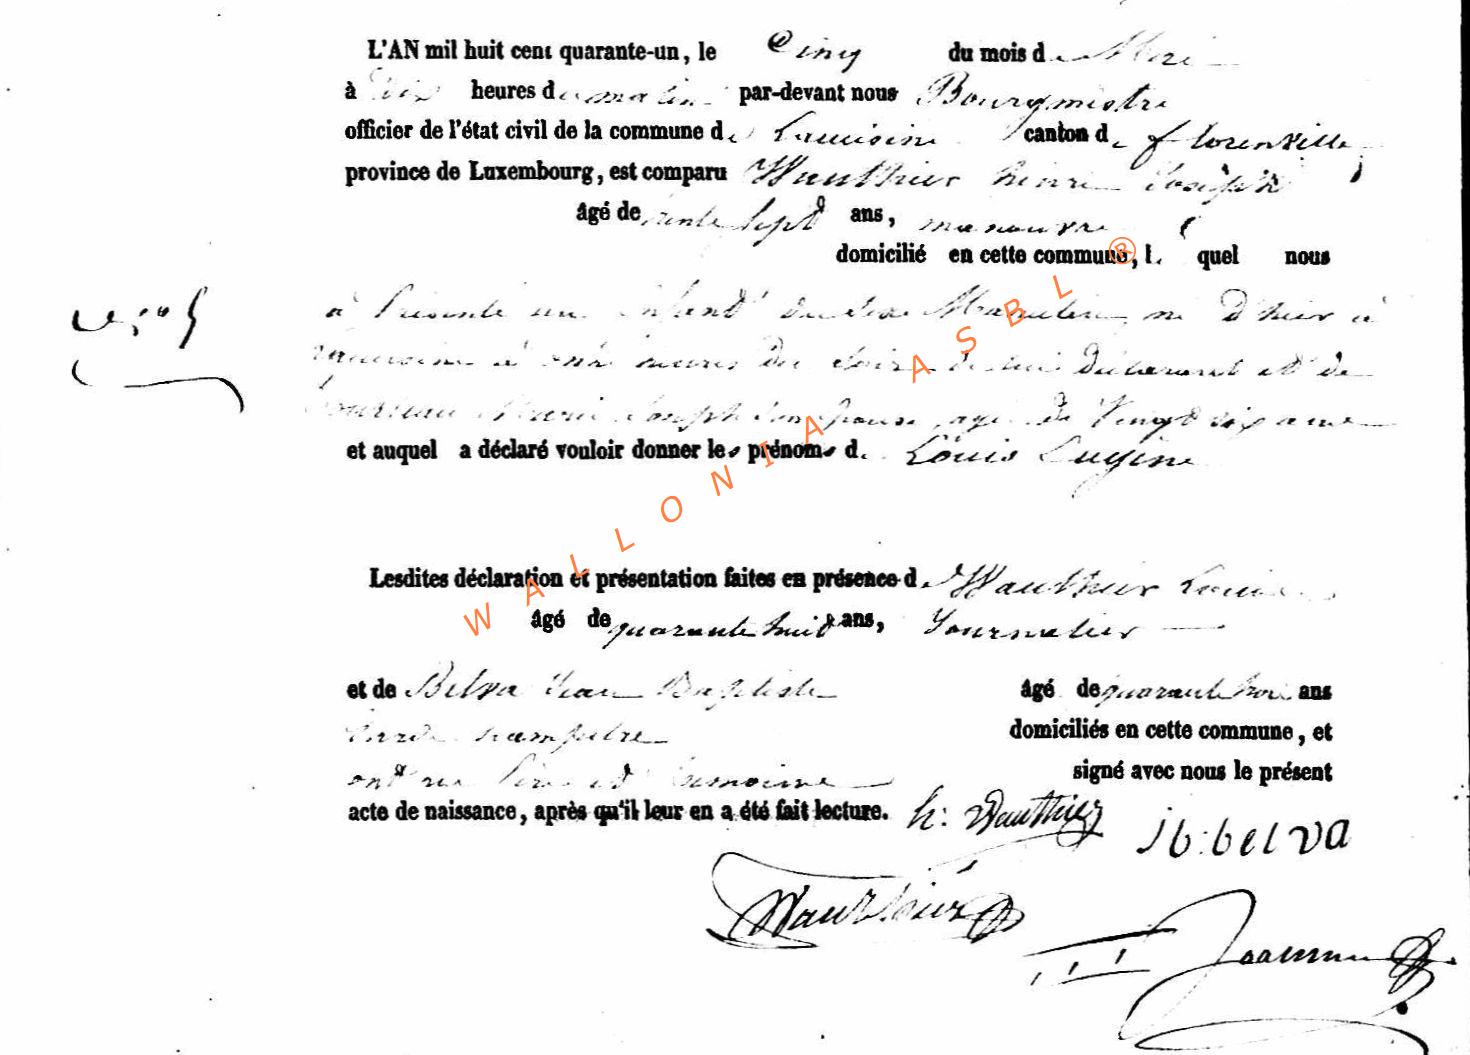 L'AN mil huit cent quarante-un, le Cinq du mois de Mai
à Dix heures du matin par-devant nous Bourgmestre
officier de l'état civil de la commune de Lacuisine canton de florenville,
province de Luxembourg, est comparu Wauthier henri Joseph
âgé de trente Sept ans, manouvre
domicilié en cette commune, l. quel nous
N° 5
à Présenté un enfant du sexe Masculin né d'hier à
Lacuisine à onze heures du soir de lui Déclarant et de
Marie Joseph Son épouse agée de Vingt six ans
et auquel a déclaré vouloir donner les prénoms de Louis Eugène
Lesdites déclaration et présentation faites en présence de Wauthier Louis
âgé de quarante huit ans, Journalier
et de Belva Jean Baptiste âgé de quarante trois ans
Garde Champêtre domiciliés en cette commune, et
ont les Père et témoins signé avec nous le présent
acte de naissance, après qu'il leur en a été fait lecture. h: Wauthier
jb:belva
Wauthier
WALLONIA ASBL ®